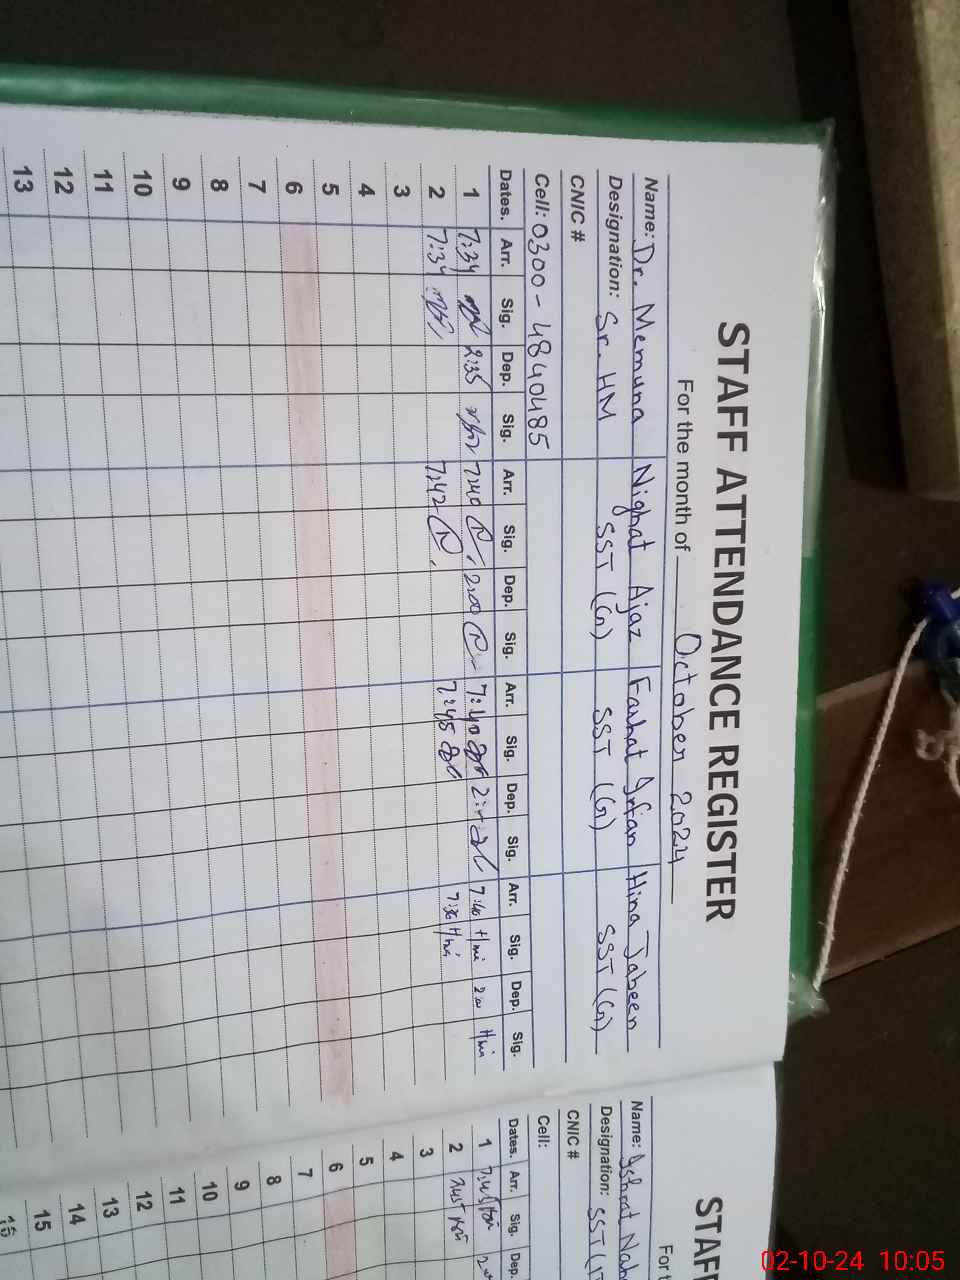 STAFF ATTENDANCE REGISTER
For the month of October 2024
Name: Dr. Memuna Nighat Ajaz Farhat Irfan Hina Jabeen
Designation: Sr. HM SST (G) SST (G) SST (G)
CNIC #
Cell: 0300-4840485
Dates. Arr. Sig. Dep. Sig. Arr. Sig. Dep. Sig. Arr. Sig. Dep. Sig. Arr. Sig. Dep. Sig.
1 7:34 2:35 7:40 2:00 7:40 7:40 2:00
2 7:34 7:42 7:45 7:30
3
4
5
6
7
8
9
10
11
12
13
STAFF
For t
Name: Ishrat
Designation: SST
CNIC #
Cell:
Dates. Arr. Sig. Dep.
1 7:45
2 7:45
3
4
5
6
7
8
9
10
11
12
13
14
15
16
02-10-24 10:05